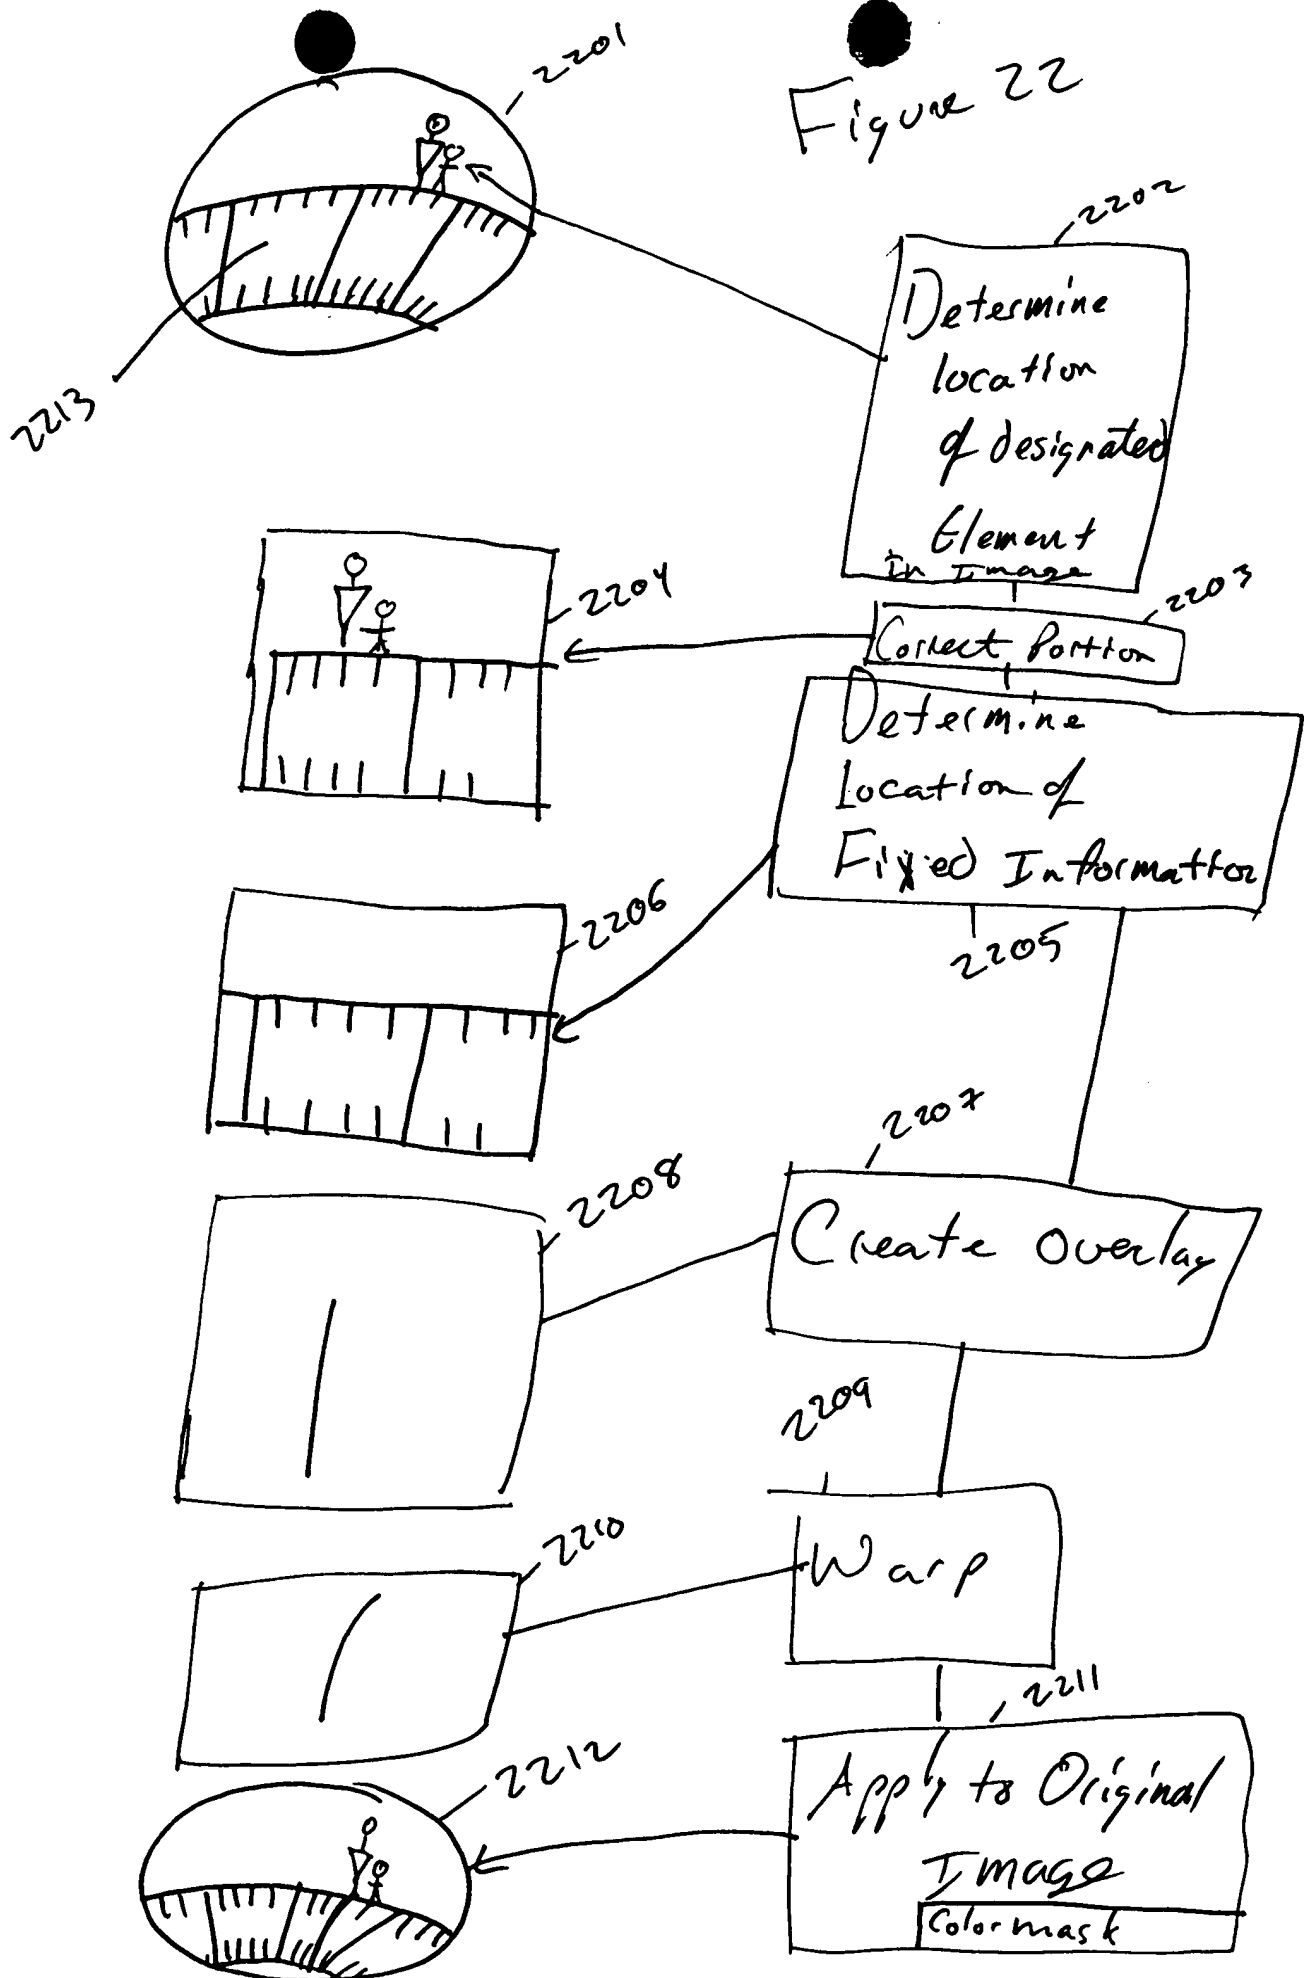 2201
Figure 22
2202
Determine
location
of designated
Element
In Image
2213
2203
2204
Correct Portion
Determine
Location of
Fixed Information
2206
2205
2207
2208
Create Overlay
2209
2210
Warp
2211
2212
Apply to Original
Image
Colormask